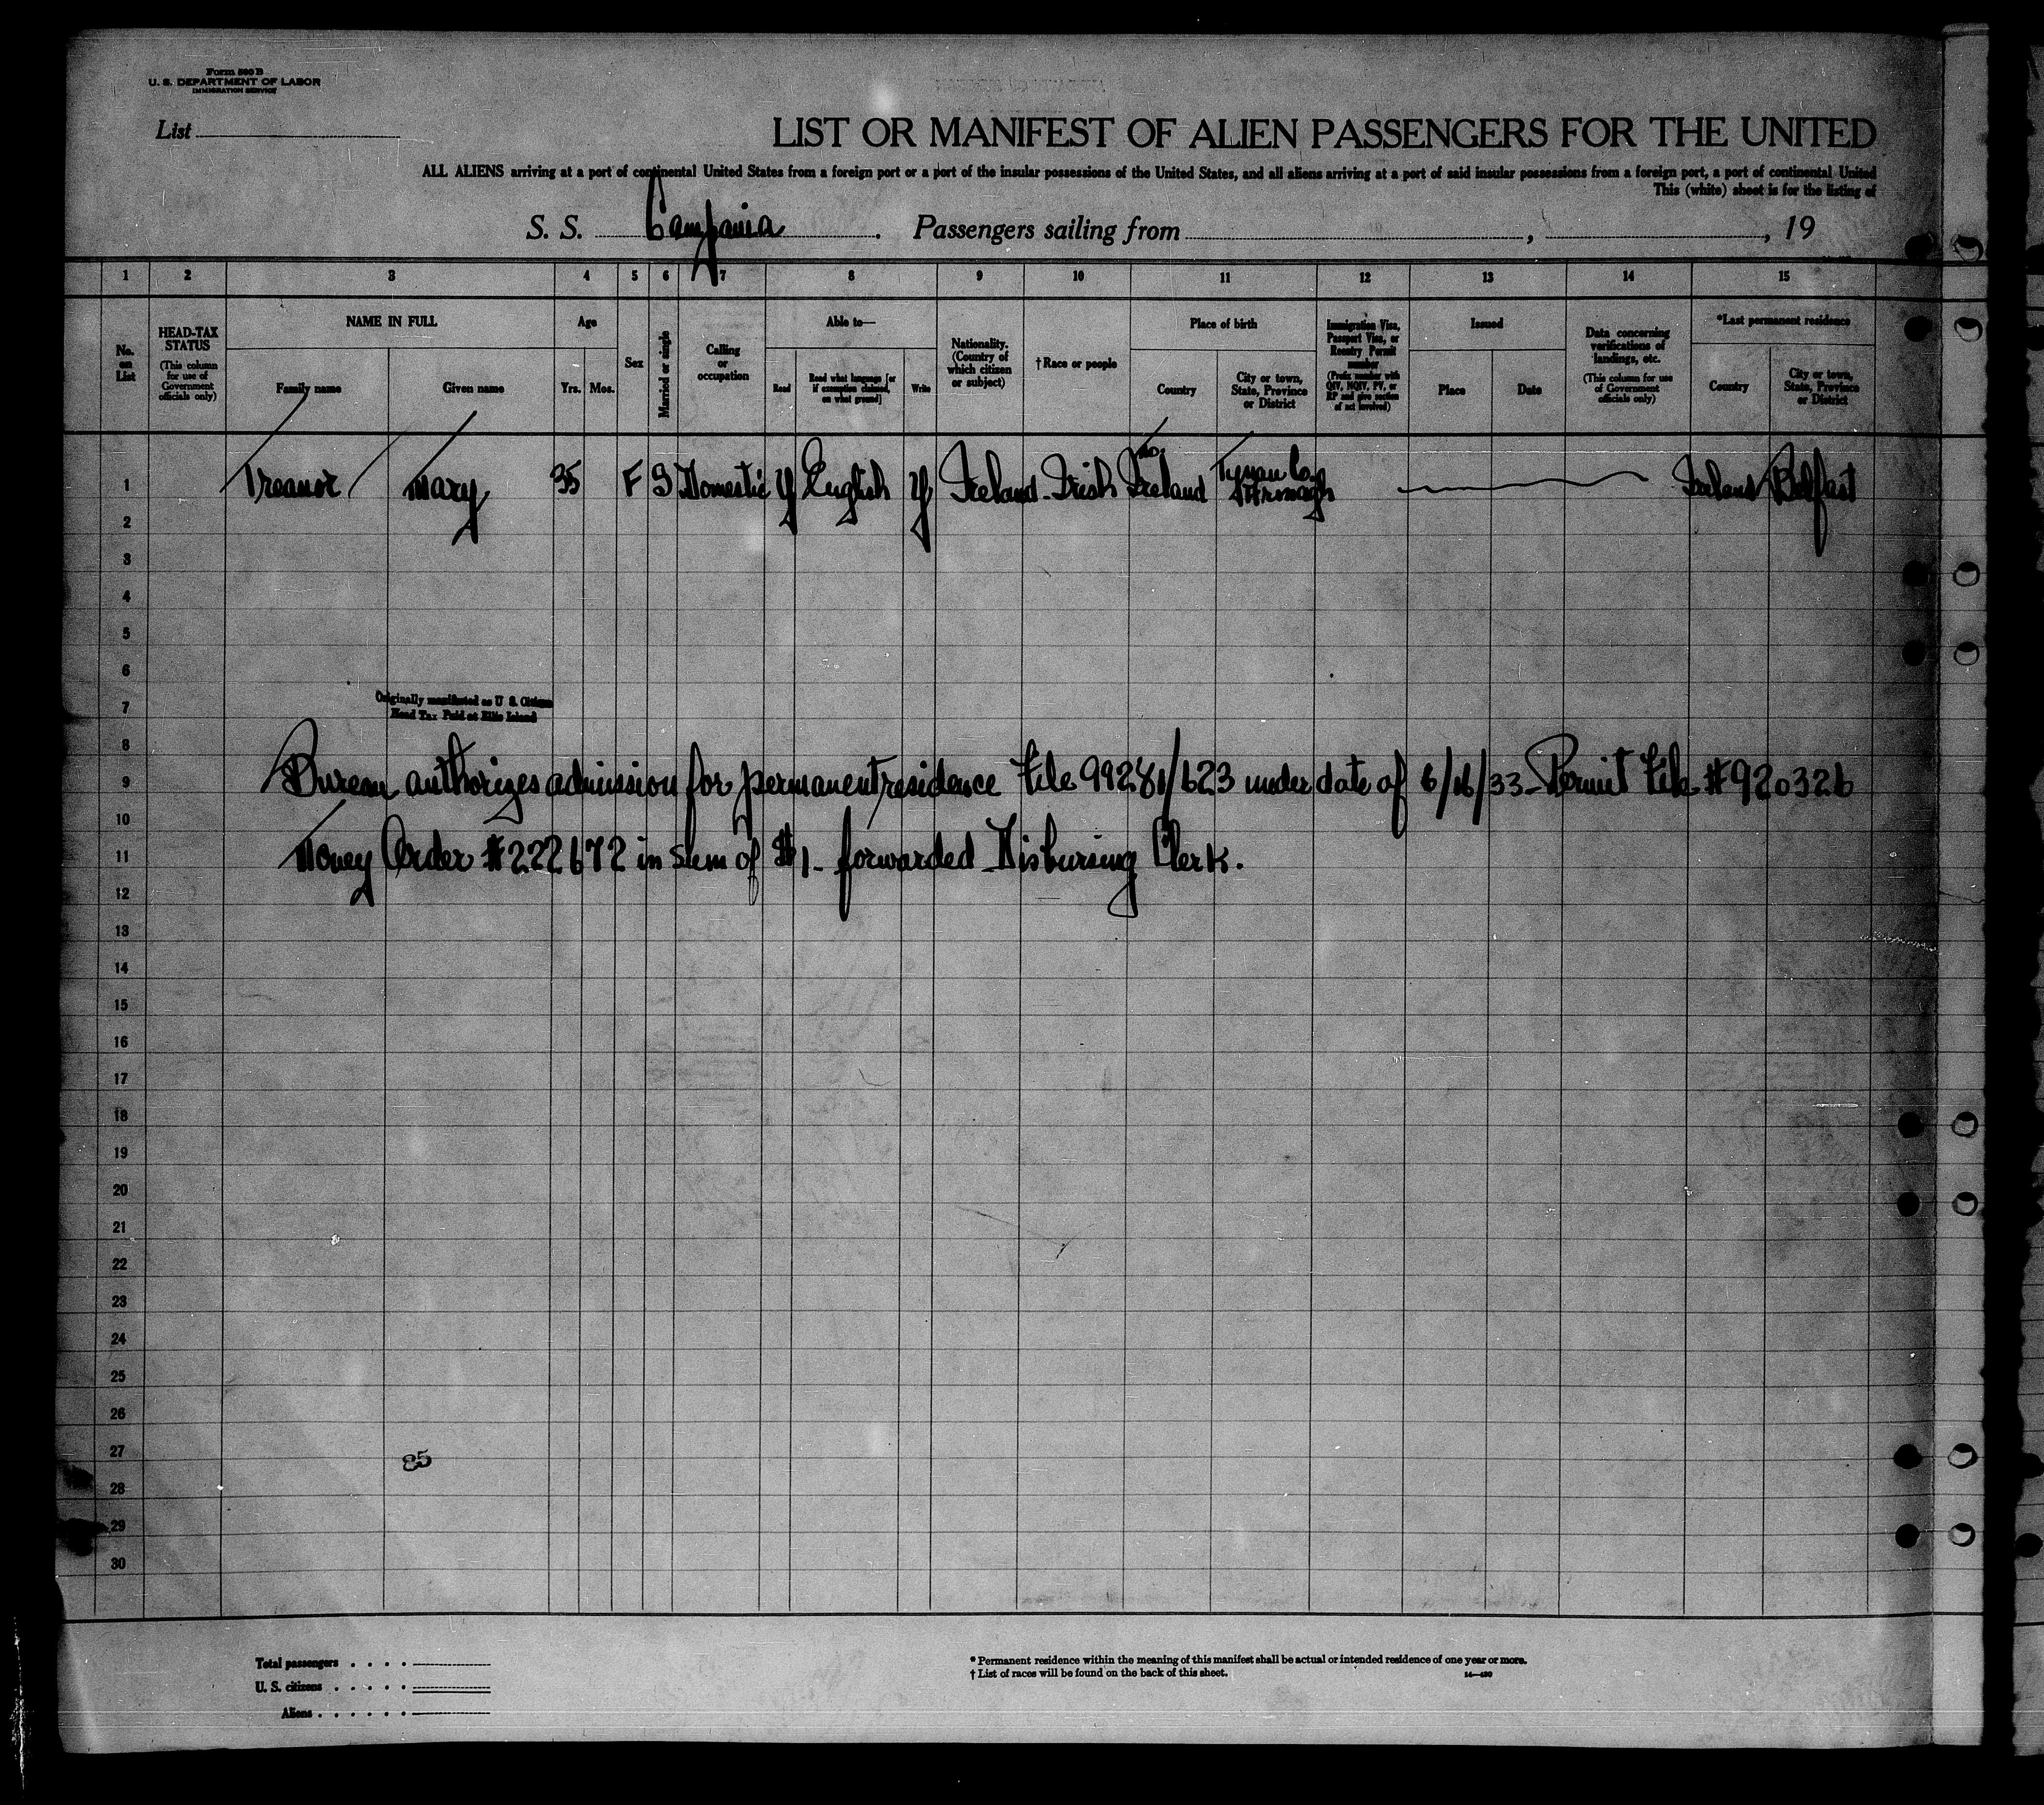 Form 500 B
U. S. DEPARTMENT OF LABOR
IMMIGRATION SERVICE
List
LIST OR MANIFEST OF ALIEN PASSENGERS FOR THE UNITED
ALL ALIENS arriving at a port of continental United States from a foreign port or a port of the insular possessions of the United States, and all aliens arriving at a port of said insular possessions from a foreign port, a port of continental United
This (white) sheet is for the listing of
S. S. Campania. Passengers sailing from , , 19
1 2 3 4 5 6 7 8 9 10 11 12 13 14 15
No. on List
HEAD-TAX STATUS
(This column for use of Government officials only)
NAME IN FULL
Family name
Given name
Age
Yrs. Mos.
Sex
Married or single
Calling or occupation
Able to—
Read
Read what language [or if exemption claimed, on what ground]
Write
Nationality. (Country of which citizen or subject)
† Race or people
Place of birth
Country
City or town, State, Province or District
Immigration Visa, Passport Visa, or Reentry Permit number
(Prefix number with QIV, NQIV, PV, or RP and give section of act involved)
Issued
Place
Date
Data concerning verifications of landings, etc.
(This column for use of Government officials only)
*Last permanent residence
Country
City or town, State, Province or District
1 Treanor Mary 35 F S Domestic Y English Y Ireland Irish No. Ireland Tynan Co. Armagh Ireland Belfast
2
3
4
5
6
Originally manifested as U S. Citizen
7
Head Tax Paid at Ellis Island
8
9 Bureau authorizes admission for permanent residence File 99281/623 under date of 6/16/33 - Permit File #920326
10
11 Money Order #222672 in sum of $1- forwarded Disbursing Clerk.
12
13
14
15
16
17
18
19
20
21
22
23
24
25
26
27
85
28
29
30
Total passengers . . . .
U. S. citizens . . . . .
Aliens . . . . . .
* Permanent residence within the meaning of this manifest shall be actual or intended residence of one year or more.
† List of races will be found on the back of this sheet.
14—430